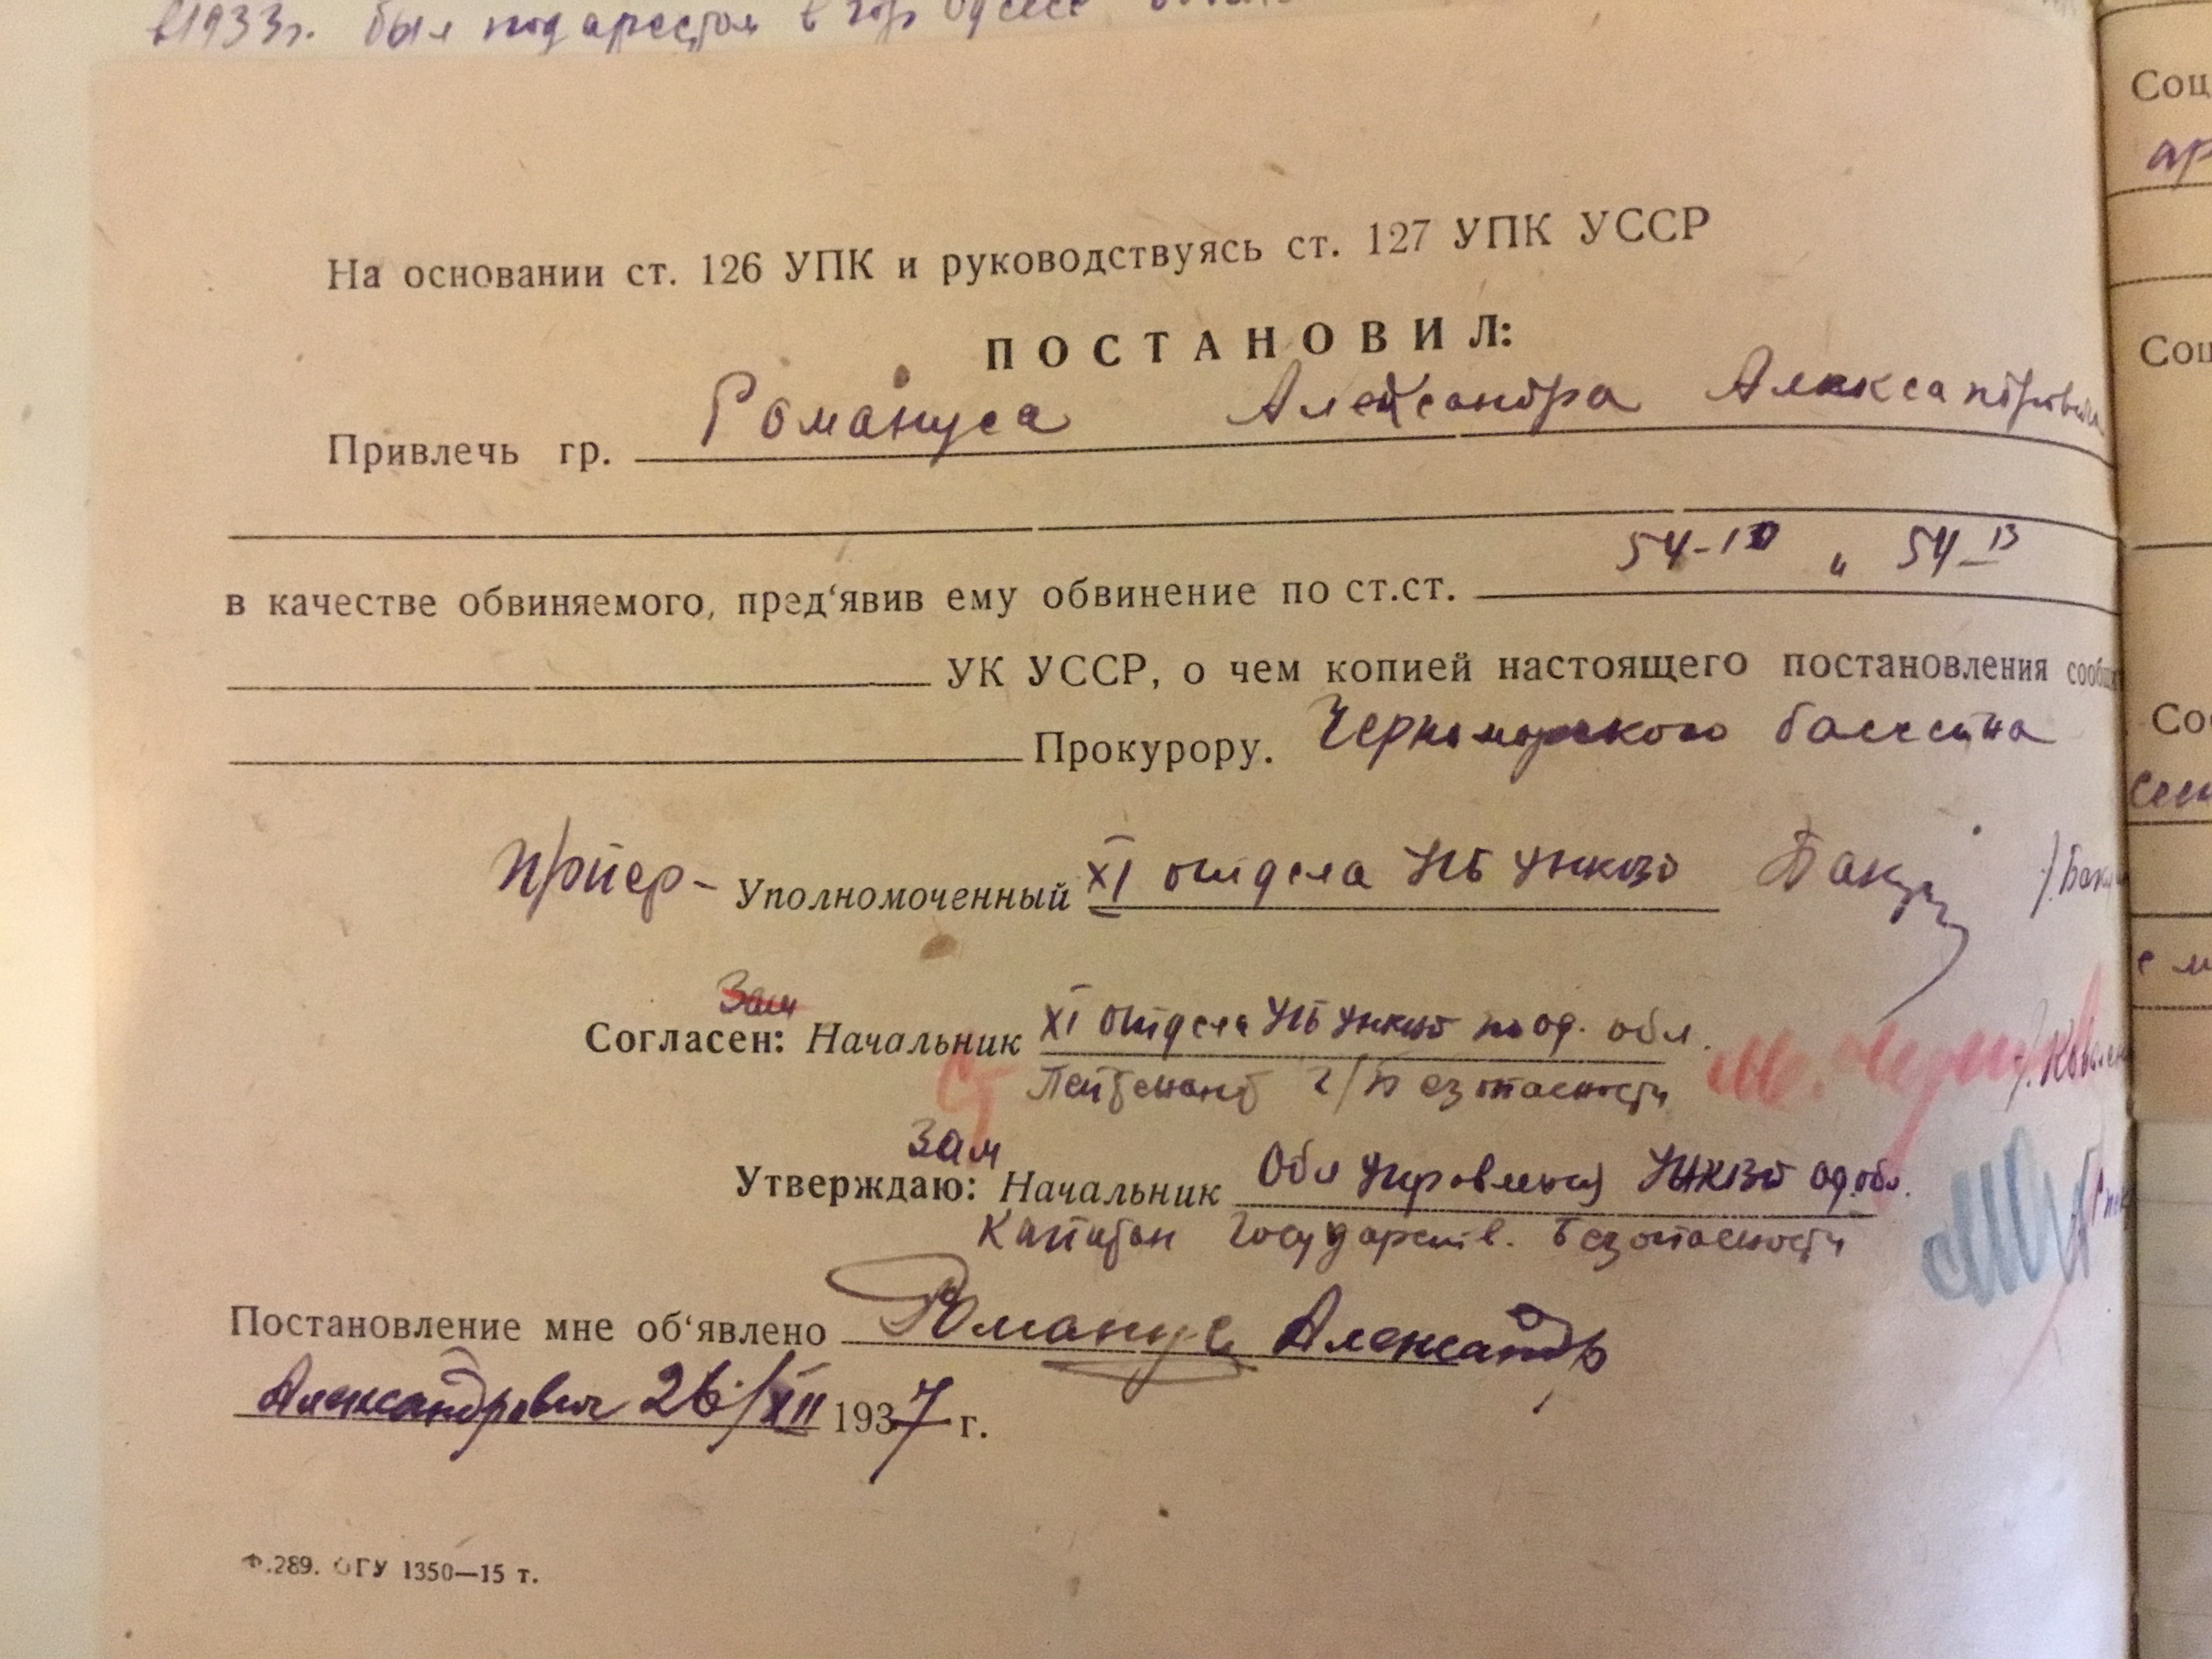 в 1933 г. был под арестом в гор Одессе
На основании ст. 126 УПК и руководствуясь ст. 127 УПК УССР
ПОСТАНОВИЛ:
Привлечь гр. Романуса Александра Александрович
в качестве обвиняемого, пред‘явив ему обвинение по ст.ст. 54-10 и 54-13
УК УССР, о чем копией настоящего постановления сообщ
Прокурору. Черноморского бассейна
Уполномоченный XI отдела УГБ УНКВД
Зам
Согласен: Начальник XI отдела УГБ УНКВД по од. обл.
Лейтенант г/Безопасности
Зам
Утверждаю: Начальник Обл Управления НКВД од. обл.
Капитан Государств. Безопасности
Постановление мне об‘явлено Романус Александр
Александрович 26/XII 1937 г.
Ф.289. ОГУ 1350—15 т.
Соц
ар
Соц
Со
Сем
с м